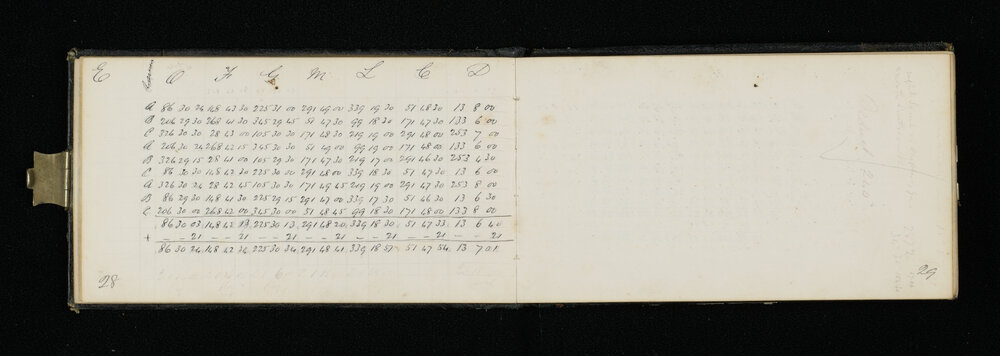 E O F G M L C D
A 86 30 24 148 43 30 225 31 00 291 49 00 339 19 30 51 48 30 13 8 00
B 206 29 30 268 41 30 345 29 45 51 47 30 99 18 30 171 47 30 133 6 00
C 326 30 30 28 43 00 105 30 30 171 48 30 219 19 00 291 48 00 253 7 00
A 206 30 24 268 42 15 345 30 30 51 49 00 99 19 00 171 48 00 133 6 00
B 326 29 15 28 41 00 105 29 30 171 47 30 219 17 00 291 46 30 253 4 30
C 86 30 30 148 42 30 225 30 00 291 48 00 339 18 30 51 47 30 13 6 00
A 326 30 24 28 42 45 105 30 30 171 49 45 219 19 00 291 47 30 253 8 00
B 86 29 30 148 41 30 225 29 15 291 47 00 339 17 30 51 46 30 13 6 30
C 206 30 00 268 42 00 345 30 00 51 48 45 99 18 30 171 48 00 133 8 00
86 30 03 148 42 13 225 30 13 291 48 20 339 18 30 51 47 33 13 6 40
+ – – 21 – – 21 – – 21 – – 21 – – 21 – – 21 – – 21
86 30 24 148 42 34 225 30 34 291 48 41 339 18 51 51 47 54 13 7 01
28
29